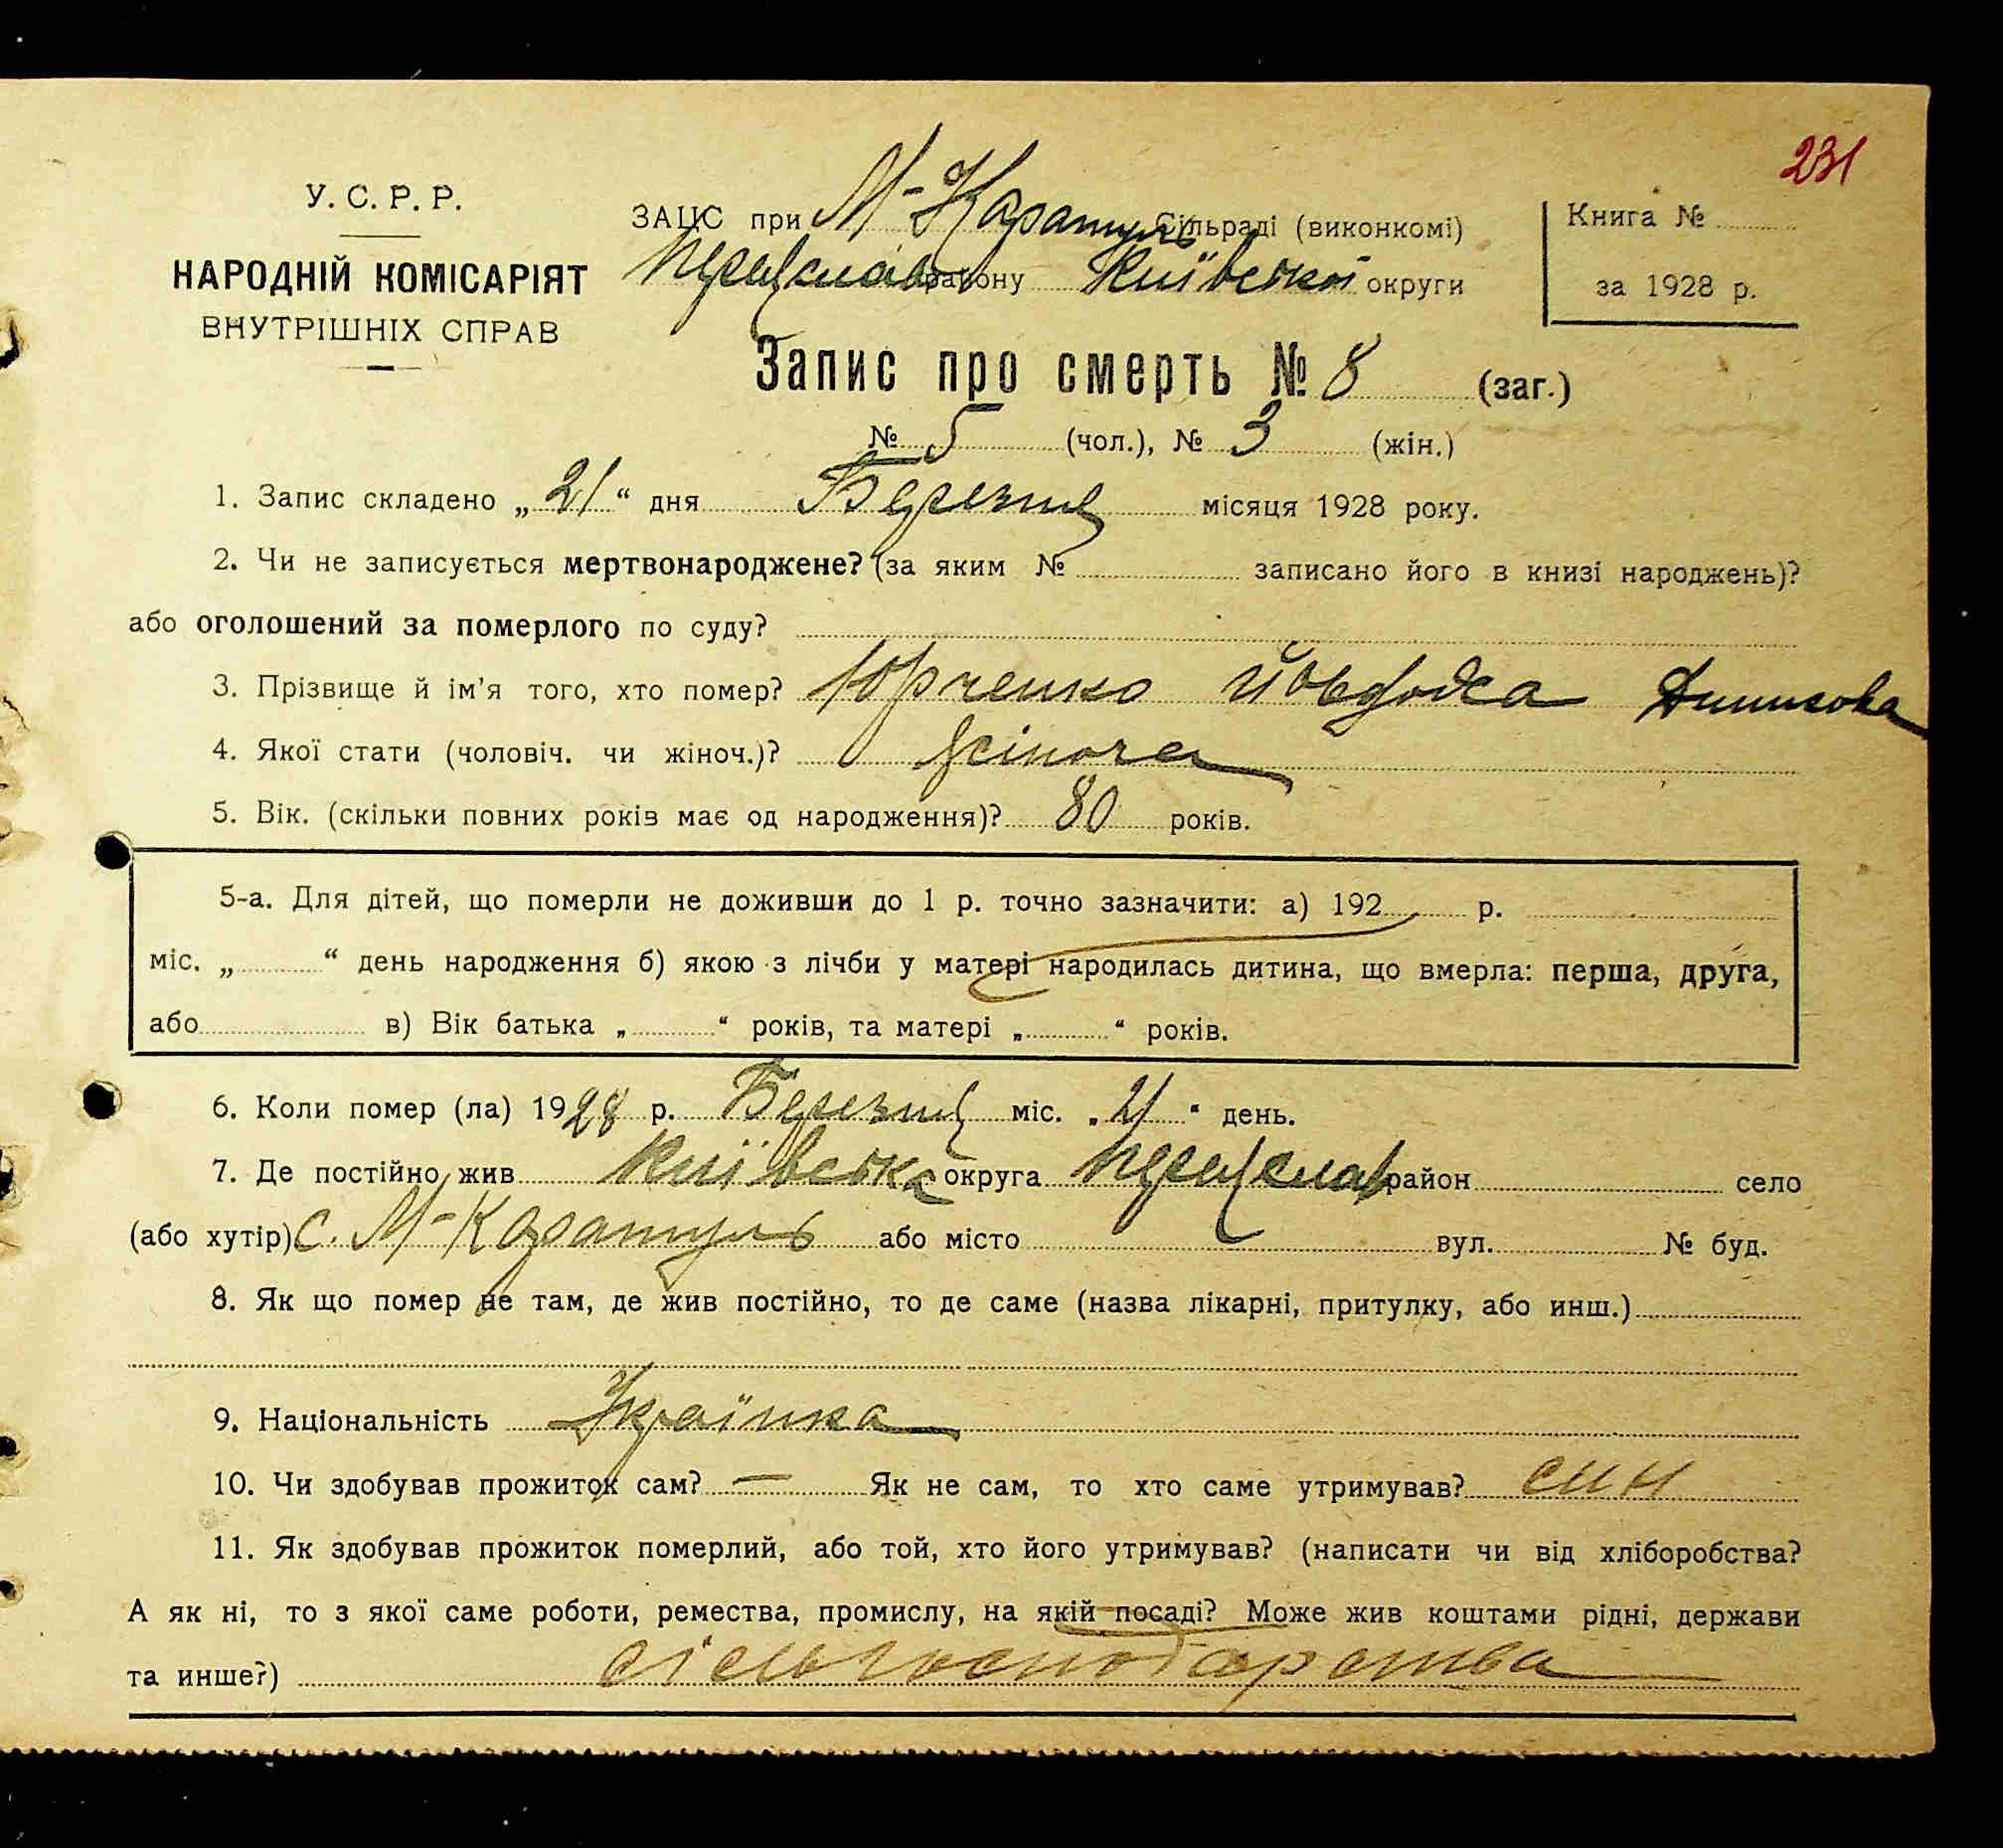 231
У. С. Р. Р.
НАРОДНІЙ КОМІСАРІЯТ
ВНУТРІШНІХ СПРАВ
ЗАЦС при М-Каратуль Сільраді (виконкомі)
Переяслав району Київської округи
Книга №
за 1928 р.
Запис про смерть № 8 (заг.)
№ 5 (чол.), № 3 (жін.)
1. Запис складено „21“ дня Березня місяця 1928 року.
2. Чи не записується мертвонароджене? (за яким № записано його в книзі народжень)?
або оголошений за померлого по суду?
3. Прізвище й ім'я того, хто помер? Юрченко Йовдоха
4. Якої стати (чоловіч. чи жіноч.)? жіноча
5. Вік. (скільки повних років має од народження)? 80 років.
5-а. Для дітей, що померли не доживши до 1 р. точно зазначити: а) 192 р.
міс. „ “ день народження б) якою з лічби у матері народилась дитина, що вмерла: перша, друга,
або в) Вік батька „ “ років, та матері „ “ років.
6. Коли помер (ла) 1928 р. Березня міс. „21“ день.
7. Де постійно жив Київська округа Переяслав район село
(або хутір) с. М-Каратуль або місто вул. № буд.
8. Як що помер не там, де жив постійно, то де саме (назва лікарні, притулку, або инш.)
9. Національність Українка
10. Чи здобував прожиток сам? — Як не сам, то хто саме утримував? син
11. Як здобував прожиток померлий, або той, хто його утримував? (написати чи від хліборобства?
А як ні, то з якої саме роботи, ремества, промислу, на якій посаді? Може жив коштами рідні, держави
та инше?) сільгосподарства